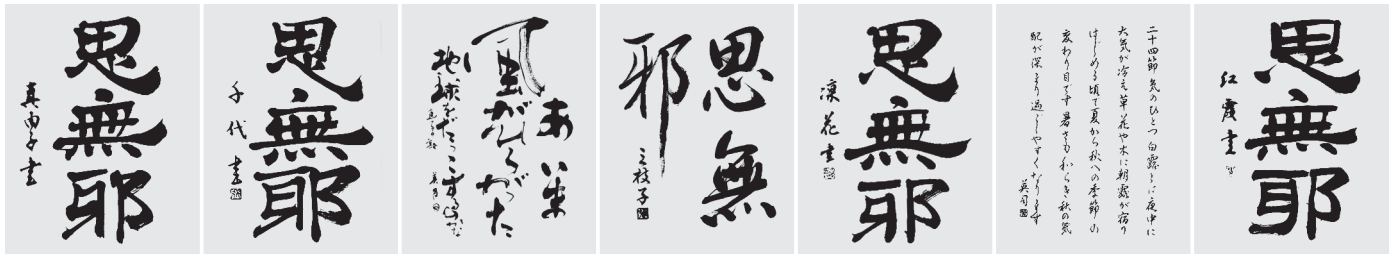 思無邪
真由子書
思無邪
千代書
あ いま
風が
地球を
思無
邪
三枝子
思無邪
花書
二十四節気のひとつ 白露とは夜中に
大気が冷え草花や木に朝露が宿り
はじめる頃で夏から秋への季節の
変わり目です 暑さも和らぎ秋の気
配が深まり過しやすくなります
思無邪
紅霞書